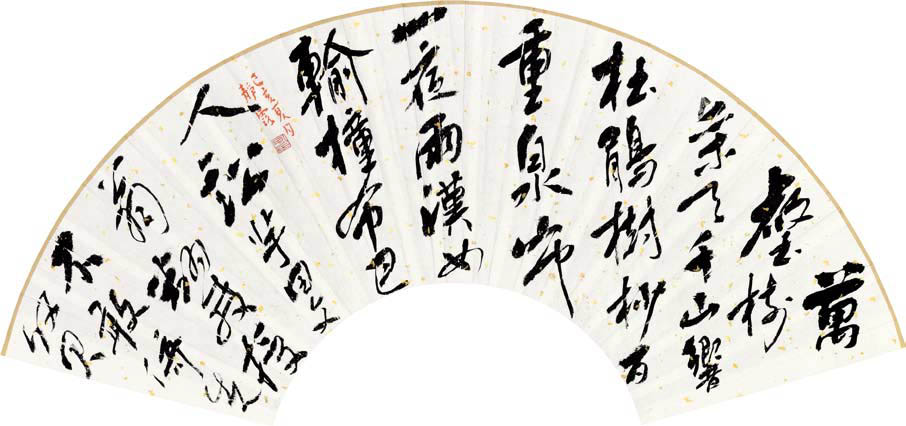 萬
壑樹
參天千山響
杜鵑樹杪百
重泉山中
一夜雨漢女
輸橦布巴
人訟芋田文
翁翻教授
不敢倚先
賢
己亥夏月